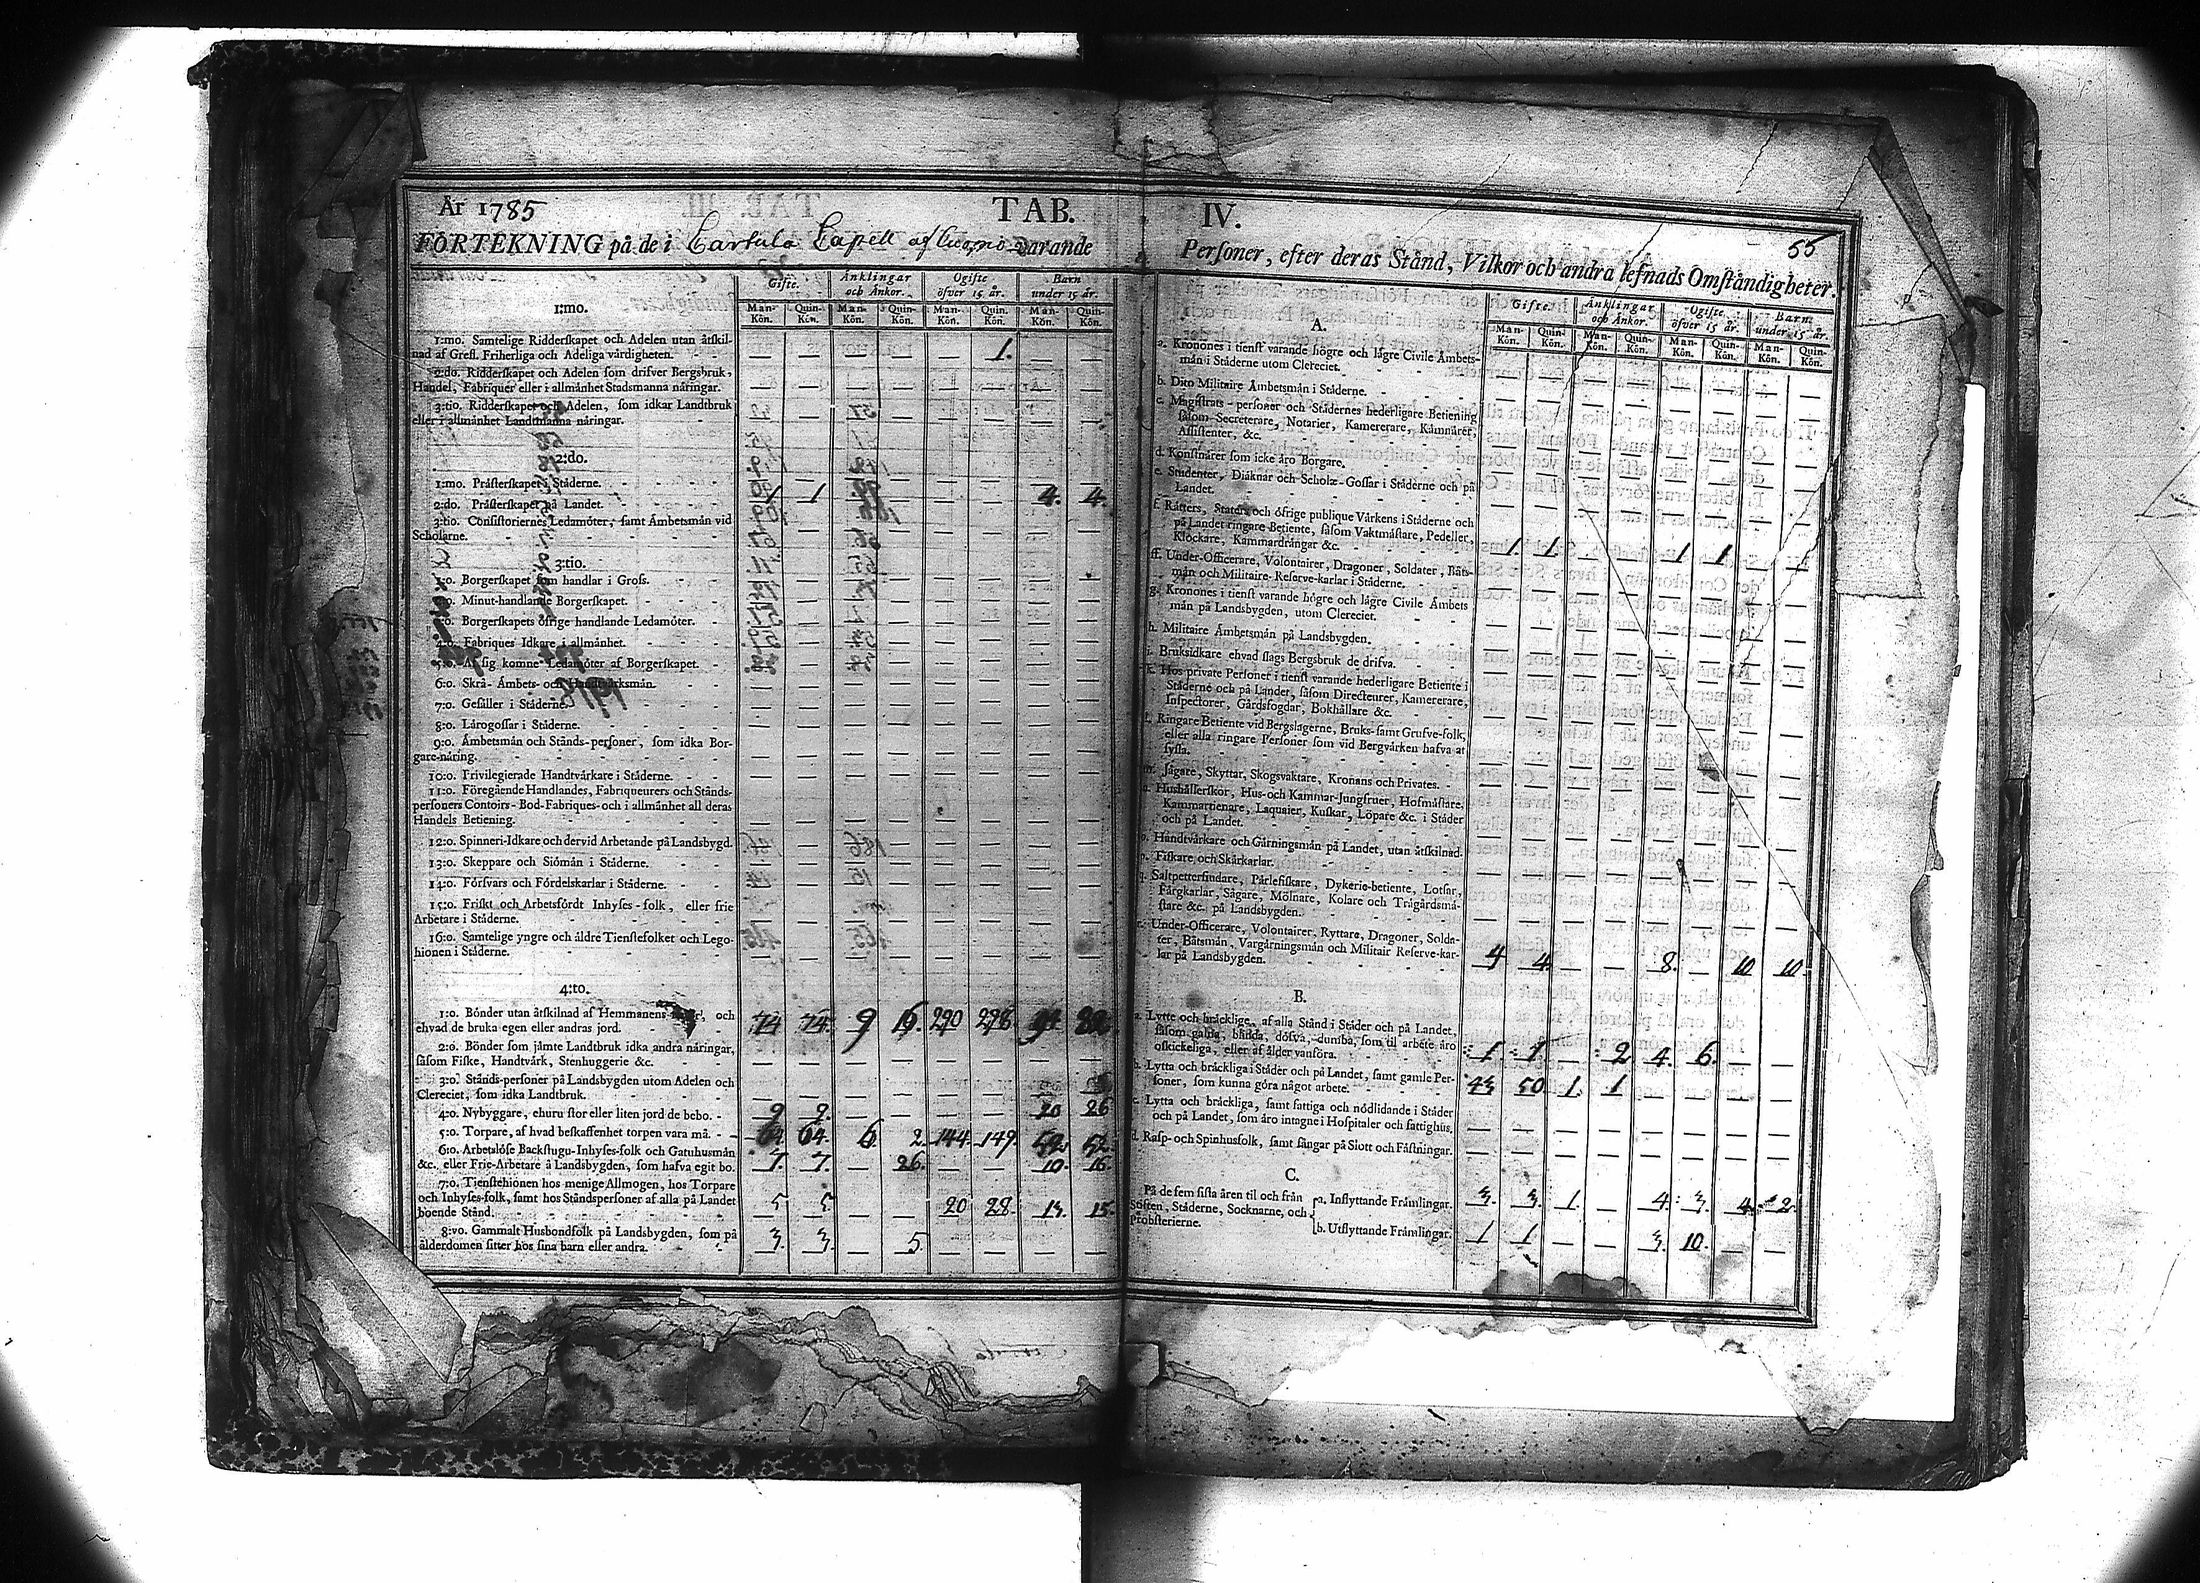 År 1785 TAB. IV.
55
FÖRTEKNING på de i Cartula Capell af varande Personer, efter deras Stånd, Vilkor och andra lefnads Omständigheter.
Gifte. Änklingar och Änkor. Ogifte öfver 15 år. Barn under 15 år.
Man-Kön. Quin-Kön. Man-Kön. Quin-Kön. Man-Kön. Quin-Kön. Man-Kön. Quin-Kön.
1:mo.
1:mo. Samtelige Ridderskapet och Adelen utan åtskil-
nad af Grefl. Friherliga och Adeliga värdigheten. — — — — — 1. — —
2:do. Ridderskapet och Adelen som drifver Bergsbruk,
Handel, Fabriquer eller i allmänhet Stadsmanna näringar. — — — — — — — —
3:tio. Ridderskapet och Adelen, som idkar Landtbruk
eller i allmänhet Landtmanna näringar. — — — — — — — —
2:do.
1:mo. Prästerskapet i Städerne.
2:do. Prästerskapet på Landet. 1 1 4. 4.
3:tio. Consistoriernes Ledamöter, samt Ämbetsmän vid
Scholarne.
3:tio.
1:o. Borgerskapet som handlar i Gross.
2:o. Minut-handlande Borgerskapet.
3:o. Borgerskapets öfrige handlande Ledamöter.
4:o. Fabriques Idkare i allmänhet.
5:o. Af sig komne Ledamöter af Borgerskapet.
6:o. Skrå- Ämbets- och Handtvärksmän.
7:o. Gesäller i Städerne.
8:o. Lärogossar i Städerne.
9:o. Ämbetsmän och Stånds-personer, som idka Bor-
gare-näring.
10:o. Privilegierade Handtvärkare i Städerne.
11:o. Föregående Handlandes, Fabriqueurers och Stånds-
personers Contoirs- Bod-Fabriques- och i allmänhet all deras
Handels Betiening.
12:o. Spinneri-Idkare och dervid Arbetande på Landsbygd.
13:o. Skeppare och Siömän i Städerne.
14:o. Försvars och Fördelskarlar i Städerne.
15:o. Friskt och Arbetsfördt Inhyses-folk, eller frie
Arbetare i Städerne.
16:o. Samtelige yngre och äldre Tienstefolket och Lego-
hionen i Städerne.
4:to.
1:o. Bönder utan åtskilnad af Hemmanens och
ehvad de bruka egen eller andras jord. 74 74. 9 290 298
2:o. Bönder som jämte Landtbruk idka andra näringar,
såsom Fiske, Handtvärk, Stenhuggerie &c. — — — — — — — —
3:o. Stånds-personer på Landsbygden utom Adelen och
Clereciet, som idka Landtbruk.
4:o. Nybyggare, ehuru stor eller liten jord de bebo. 9 9. 20 26
5:o. Torpare, af hvad beskaffenhet torpen vara må. 64. 64. 6 2. 144. 149. 52. 52.
6:o. Arbetslöse Backstugu-Inhyses-folk och Gatuhusmän
&c. eller Frie-Arbetare å Landsbygden, som hafva egit bo. 7. 7. — 26. — — 10. 16.
7:o. Tienstehionen hos menige Allmogen, hos Torpare
och Inhyses-folk, samt hos Ståndspersoner af alla på Landet
boende Stånd. 5 5. — — 20 28. 13. 15.
8:vo. Gammalt Husbondfolk på Landsbygden, som på
ålderdomen sitter hos sina barn eller andra. 3. 3. — 5. — — — —
Gifte. Änklingar och Änkor. Ogifte öfver 15 år. Barn under 15 år.
Man-Kön. Quin-Kön. Man-Kön. Quin-Kön. Man-Kön. Quin-Kön. Man-Kön. Quin-Kön.
A.
a. Kronones i tienst varande högre och lägre Civile Ämbets-
män i Städerne utom Clereciet.
b. Dito Militaire Ämbetsmän i Städerne.
c. Magistrats-personer och Städernes hederligare Betiening
såsom Secreterare, Notarier, Kamererare, Kämnärer,
Assistenter, &c.
d. Konstnärer som icke äro Borgare.
e. Studenter, Diäknar och Scholæ-Gossar i Städerne och på
Landet.
f. Rätters, Staters och öfrige publique Värkens i Städerne och
på Landet ringare Betiente, såsom Vaktmästare, Pedeller,
Klockare, Kammardrängar &c. 1. 1. — — 1 1 — —
ff. Under-Officerare, Volontairer, Dragoner, Soldater, Båts-
män och Militaire-Reserve-karlar i Städerne.
g. Kronones i tienst varande högre och lägre Civile Ämbets
män på Landsbygden, utom Clereciet.
h. Militaire Ämbetsmän på Landsbygden.
i. Bruksidkare ehvad slags Bergsbruk de drifva.
k. Hos private Personer i tienst varande hederligare Betiente i
Städerne och på Landet, såsom Directeurer, Kamererare,
Inspectorer, Gårdsfogdar, Bokhållare &c.
l. Ringare Betiente vid Bergslagerne, Bruks-samt Grufve-folk,
eller alla ringare Personer som vid Bergvärken hafva at
syssla.
m. Jägare, Skyttar, Skogsvaktare, Kronans och Privates.
n. Hushållerskor, Hus-och Kammar-Jungfruer, Hofmästare,
Kammartienare, Laquaier, Kuskar, Löpare &c. i Städer
och på Landet.
o. Handtvärkare och Gärningsmän på Landet, utan åtskilnad.
p. Fiskare och Skärkarlar.
q. Saltpettersiudare, Pärlefiskare, Dykerie-betiente, Lotsar,
Färgkarlar, Sågare, Mölnare, Kolare och Trägårdsmä-
stare &c. på Landsbygden.
r. Under-Officerare, Volontairer, Ryttare, Dragoner, Solda-
ter, Båtsmän, Vargärningsmän och Militair Reserve-kar-
lar på Landsbygden. 4 4 — — 8. — 10 10.
B.
a. Lytte och bräcklige, af alla Stånd i Städer och på Landet,
såsom galna, blinda, döfva, dumba, som til arbete äro
oskickeliga, eller af ålder vanföra. 1. 1. — 2 4. 6. — —
b. Lytta och bräckliga i Städer och på Landet, samt gamle Per-
soner, som kunna göra något arbete. 43 50. 1. 1 — — — —
c. Lytta och bräckliga, samt fattiga och nödlidande i Städer
och på Landet, som äro intagne i Hospitaler och fattighus.
d. Rasp- och Spinhusfolk, samt fångar på Slott och Fästningar.
C.
På de fem sista åren til och från Stiften, Städerne, Socknarne, och Probsterierne.
a. Inflyttande Främlingar. 3. 3. 1. — 4. 3. 4. 2.
b. Utflyttande Främlingar. 1 1 — — 3. 10. — —